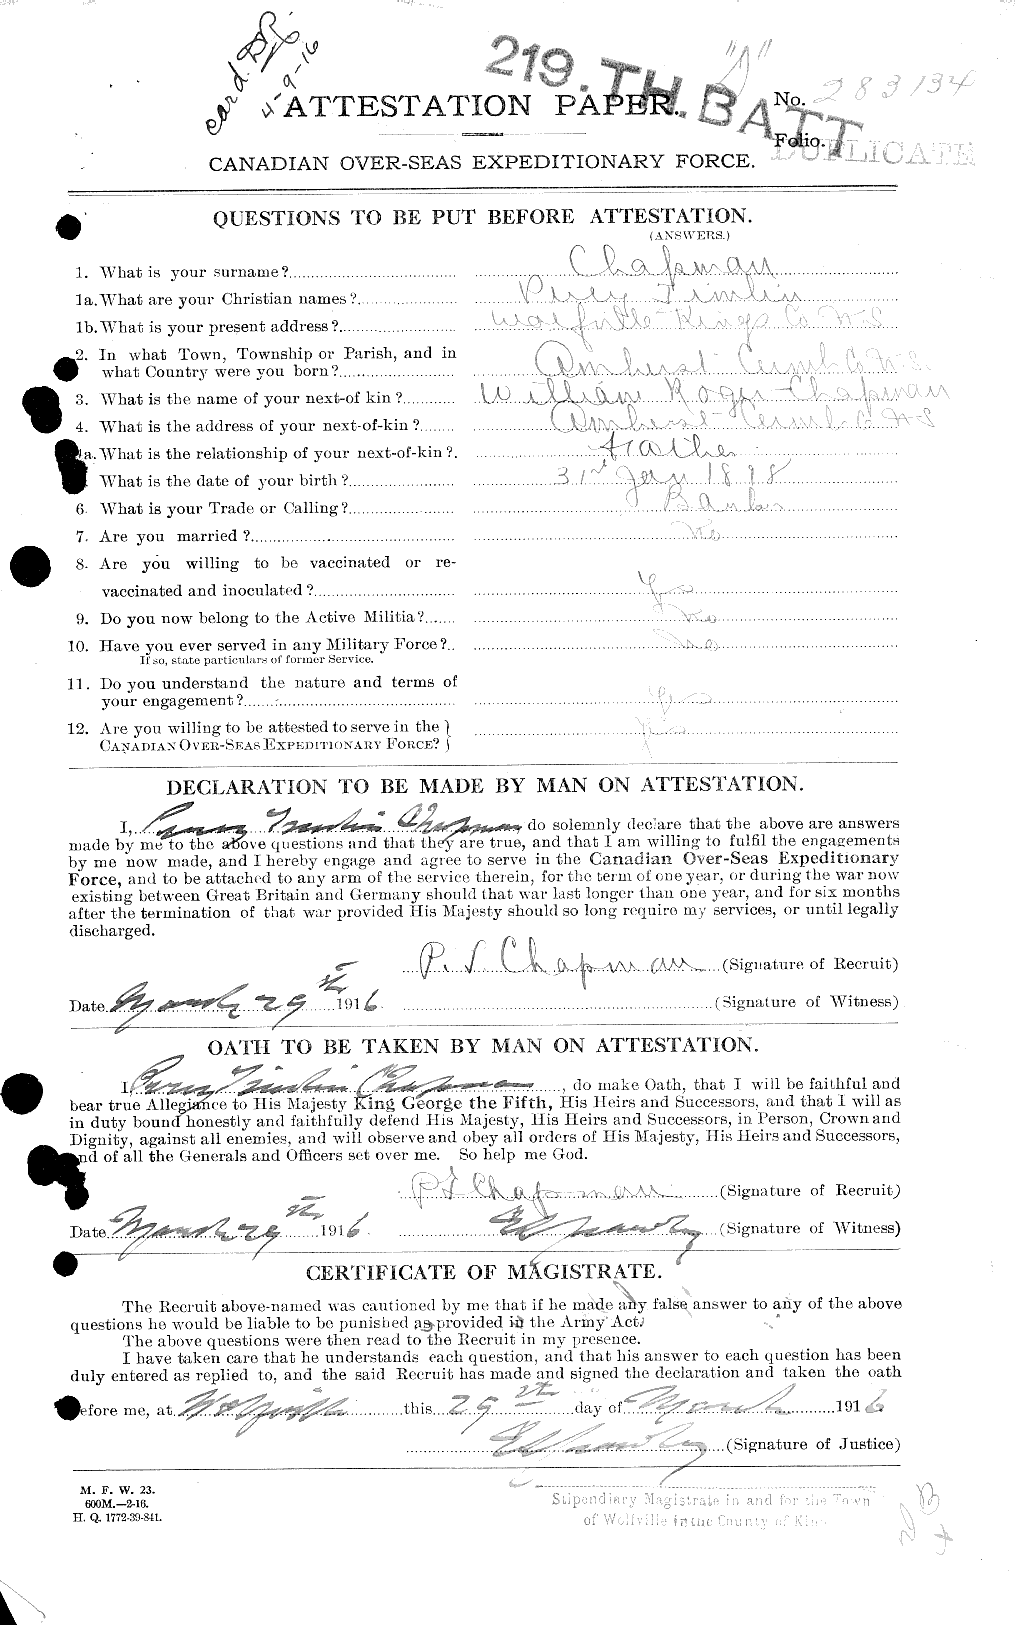 card.
4-9-16
219.TH.BATT
"A"
ATTESTATION PAPER.
No. 283134
Folio.
DUPLICATE
CANADIAN OVER-SEAS EXPEDITIONARY FORCE.
QUESTIONS TO BE PUT BEFORE ATTESTATION.
(ANSWERS.)
1. What is your surname? Chapman
1a. What are your Christian names? Percy Timlin
1b. What is your present address? Wolfville Kings Co N.S
2. In what Town, Township or Parish, and in
what Country were you born? Amherst Cumb. Co N.S.
3. What is the name of your next-of kin? William Roger Chapman
4. What is the address of your next-of-kin? Amherst Cumb. Co N.S
4a. What is the relationship of your next-of-kin? Father
What is the date of your birth? 31st Jan 1898
6. What is your Trade or Calling?
7. Are you married? No
8. Are you willing to be vaccinated or re-
vaccinated and inoculated? Yes
9. Do you now belong to the Active Militia? No
10. Have you ever served in any Military Force? No
If so, state particulars of former Service.
11. Do you understand the nature and terms of
your engagement? Yes
12. Are you willing to be attested to serve in the
CANADIAN OVER-SEAS EXPEDITIONARY FORCE? Yes
DECLARATION TO BE MADE BY MAN ON ATTESTATION.
I, Percy Timlin Chapman do solemnly declare that the above are answers
made by me to the above questions and that they are true, and that I am willing to fulfil the engagements
by me now made, and I hereby engage and agree to serve in the Canadian Over-Seas Expeditionary
Force, and to be attached to any arm of the service therein, for the term of one year, or during the war now
existing between Great Britain and Germany should that war last longer than one year, and for six months
after the termination of that war provided His Majesty should so long require my services, or until legally
discharged.
P. T. Chapman (Signature of Recruit)
Date March 29th 1916 (Signature of Witness)
OATH TO BE TAKEN BY MAN ON ATTESTATION.
I, Percy Timlin Chapman, do make Oath, that I will be faithful and
bear true Allegiance to His Majesty King George the Fifth, His Heirs and Successors, and that I will as
in duty bound honestly and faithfully defend His Majesty, His Heirs and Successors, in Person, Crown and
Dignity, against all enemies, and will observe and obey all orders of His Majesty, His Heirs and Successors,
and of all the Generals and Officers set over me. So help me God.
P T Chapman (Signature of Recruit)
Date March 29th 1916 (Signature of Witness)
CERTIFICATE OF MAGISTRATE.
The Recruit above-named was cautioned by me that if he made any false answer to any of the above
questions he would be liable to be punished as provided in the Army Act.
The above questions were then read to the Recruit in my presence.
I have taken care that he understands each question, and that his answer to each question has been
duly entered as replied to, and the said Recruit has made and signed the declaration and taken the oath
before me, at Wolfville this 29th day of March 1916
(Signature of Justice)
M. F. W. 23.
600M.—2-16.
H. Q. 1772-39-841.
Stipendiary Magistrate in and for the Town
of Wolfville in the County of Kings